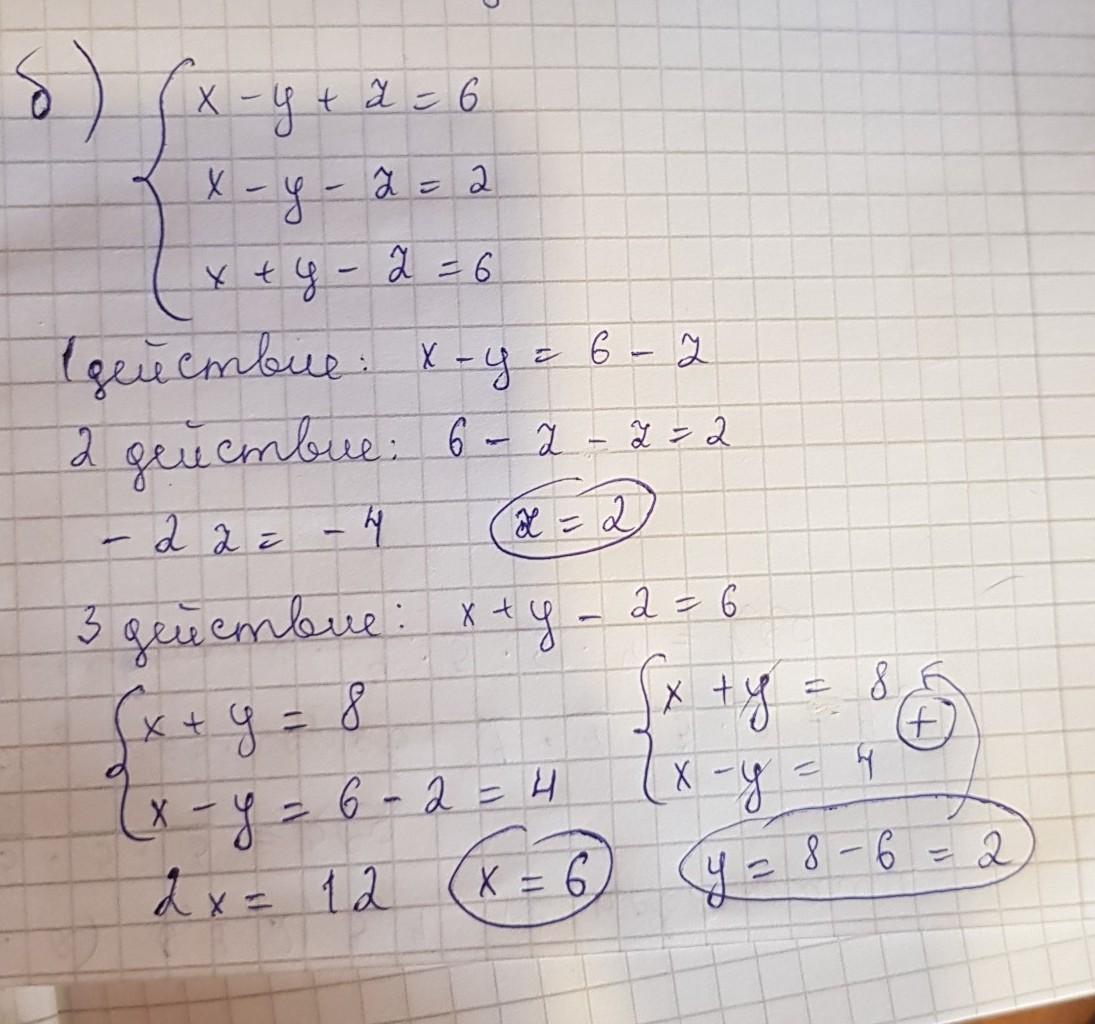 б) x - y + z = 6
x - y - z = 2
x + y - z = 6
1 действие: x - y = 6 - z
2 действие: 6 - z - z = 2
- 2 z = - 4 z = 2
3 действие: x + y - 2 = 6
x + y = 8 x + y = 8 +
x - y = 6 - 2 = 4 x - y = 4
2x = 12 x = 6 y = 8 - 6 = 2